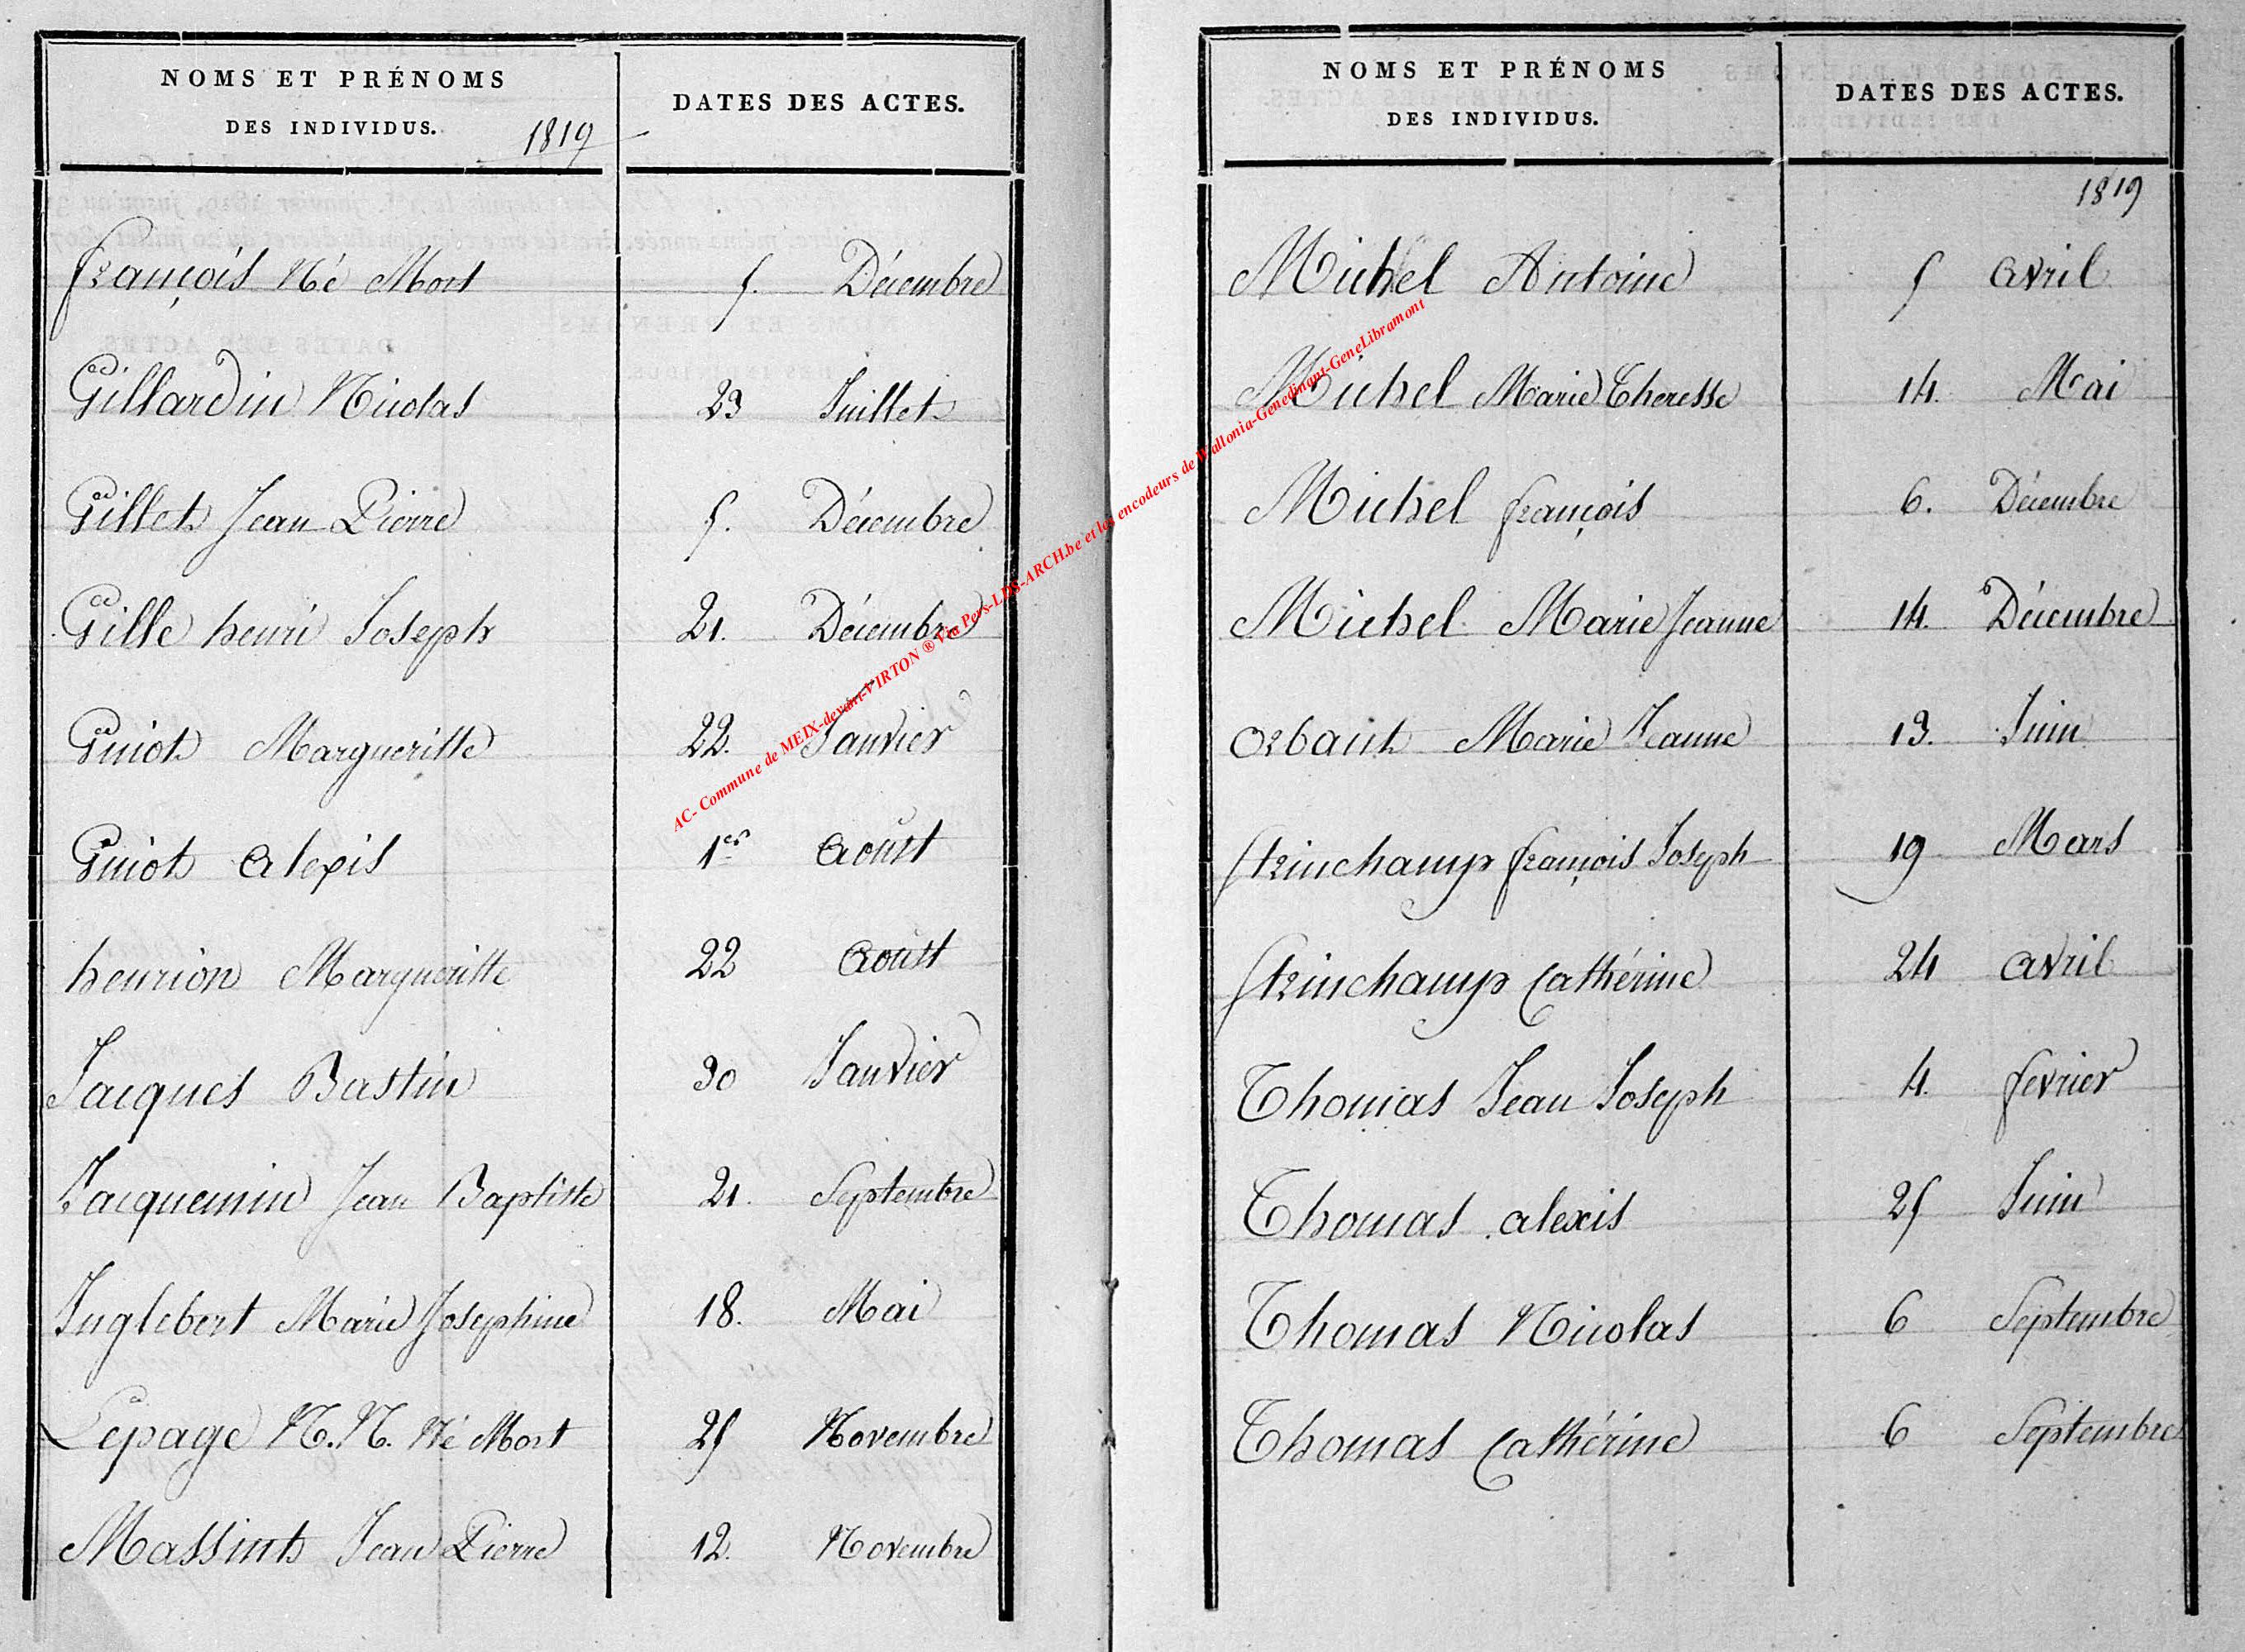 NOMS ET PRÉNOMS
DES INDIVIDUS. 1819
DATES DES ACTES.
François Né Mort 5. Décembre
Gillardin Nicolas 23 Juillet
Gillet Jean Pierre 5. Décembre
Gille henri Joseph 21. Décembre
Guiot Margueritte 22. Janvier
Guiot alexis 1er aoust
henrion Margueritte 22 aoust
Jacques Bastin 30 Janvier
Jacquemin Jean Baptiste 21. Septembre
Inglebert Marie Josephine 18. Mai
Lepage N. N. Né Mort 25 Novembre
Massint Jean Pierre 12. Novembre
NOMS ET PRÉNOMS
DES INDIVIDUS.
DATES DES ACTES.
1819
Michel Antoine 5 avril
Michel Marie Theresse 14. Mai
Michel françois 6. Décembre
Michel Marie Jeanne 14. Décembre
orbant Marie Jeanne 13. Juin
Strinchamp françois Joseph 19 Mars
Strinchamp Cathérine 24 avril
Thomas Jean Joseph 4. fevrier
Thomas alexis 25 Juin
Thomas Nicolas 6 Septembre
Thomas Cathérine 6 Septembre
AC- Commune de MEIX-devant-VIRTON ® Via Pers-LDS-ARCH.be et les encodeurs de Wallonia-Genedinant-GeneLibramont